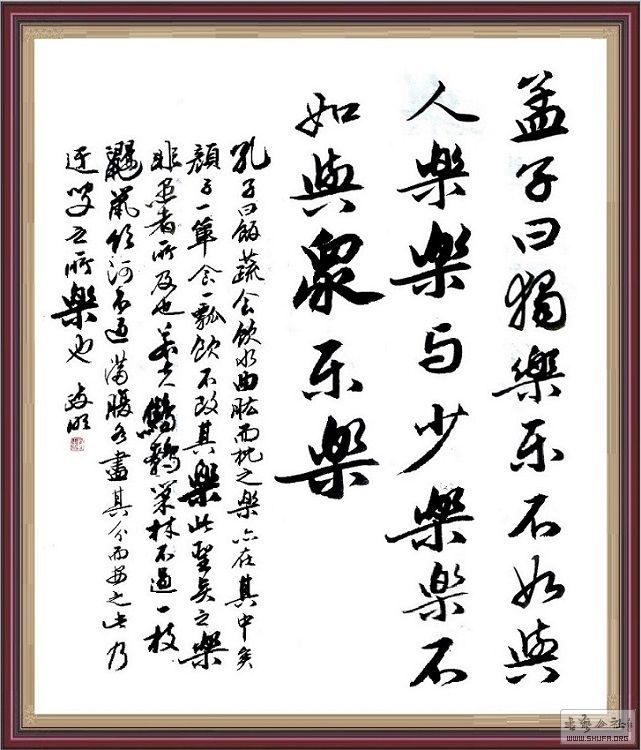 孟子曰獨樂乐不如與
人樂樂与少樂樂不
如與衆乐樂
孔子曰飯蔬食飲水曲肱而枕之樂亦在其中矣
顏子一簞食一瓢飲不改其樂此聖矣之樂
非愚者所及也若夫鷦鷯巢林不過一枝
鼴鼠飲河不過滿腹各盡其分而安之此乃
迂叟之所樂也
书艺公社
WWW.SHUFA.ORG